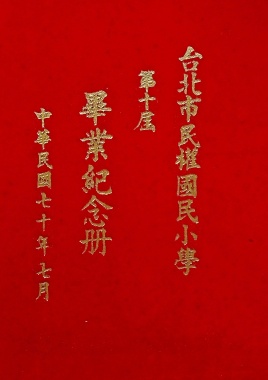 台北市民權國民小學
第十屆
畢業紀念册
中華民國七十年七月